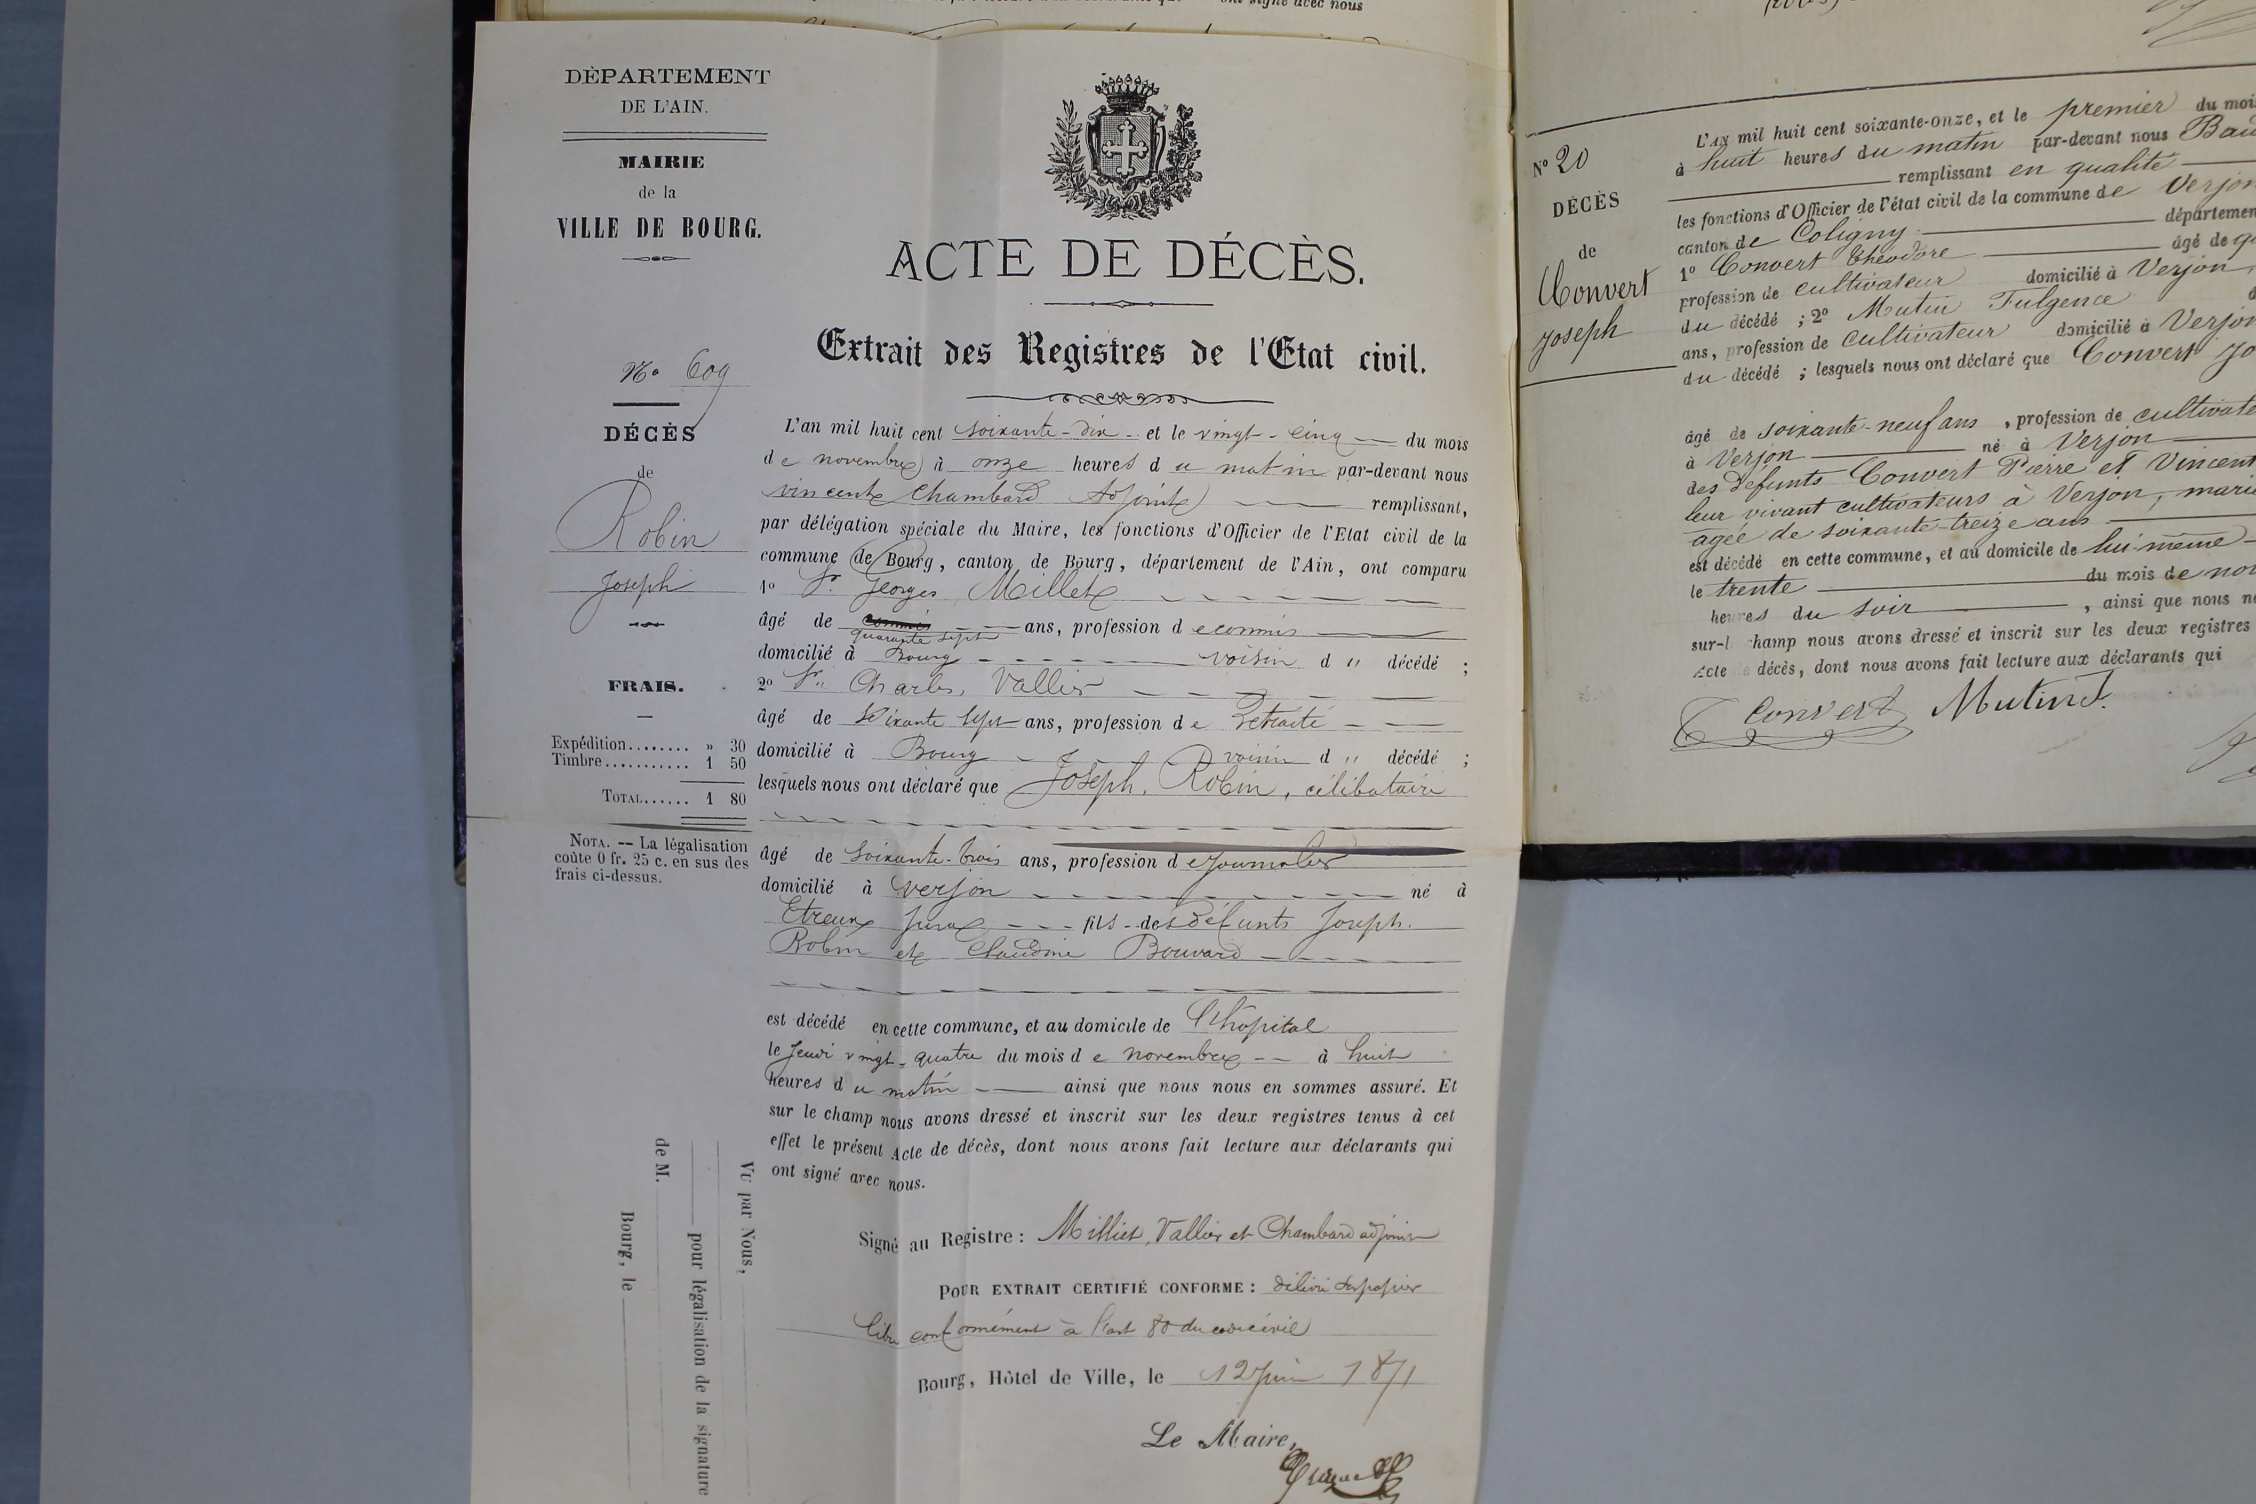 ont signé avec nous
DÉPARTEMENT
DE L'AIN.
MAIRIE
de la
VILLE DE BOURG.
ACTE DE DÉCÈS.
Extrait des Registres de l'Etat civil.
No 609
DÉCÈS
de
Robin
Joseph
FRAIS.
Expédition........ » 30
Timbre........... 1 50
TOTAL...... 1 80
NOTA. -- La légalisation
coûte 0 fr. 25 c. en sus des
frais ci-dessus.
L'an mil huit cent soixante-dix et le vingt-cinq du mois
de novembre à onze heures du matin par-devant nous
vincent Chambard Adjoint remplissant,
par délégation spéciale du Maire, les fonctions d'Officier de l'Etat civil de la
commune de Bourg, canton de Bourg, département de l'Ain, ont comparu
1o Sr. Georges Milliet
âgé de commis ans, profession de commis
quarante sept
domicilié à Bourg voisin d " décédé ;
2o Sr. Charles Vallier
âgé de Soixante Sept ans, profession de retraité
domicilié à Bourg voisin d " décédé ;
lesquels nous ont déclaré que Joseph Robin, célibataire
âgé de soixante-trois ans, profession de journalier
domicilié à Verjon né à
Etreux Jura fils des défunts Joseph
Robin et Claudine Bouvard
est décédé en cette commune, et au domicile de l'hôpital
le Jeudi vingt-quatre du mois de novembre à huit
heures du matin ainsi que nous nous en sommes assuré. Et
sur le champ nous avons dressé et inscrit sur les deux registres tenus à cet
effet le présent Acte de décès, dont nous avons fait lecture aux déclarants qui
ont signé avec nous.
Signé au Registre : Milliet, Vallier et Chambard adjoint
POUR EXTRAIT CERTIFIÉ CONFORME : délivré sur papier
libre conformément à l'art 80 du code civil
Bourg, Hôtel de Ville, le 12 juin 1871
Le Maire,
Vu par Nous,
pour légalisation de la signature
de M.
Bourg, le
No 20
DÉCÈS
de
Convert
Joseph
L'AN mil huit cent soixante-onze, et le premier du mois
à huit heures du matin par-devant nous
remplissant en qualité
les fonctions d'Officier de l'état civil de la commune de Verjon
canton de Coligny départemen
1o Convert Théodore âgé de
profession de cultivateur domicilié à Verjon,
du décédé ; 2o Mutin Fulgence
ans, profession de cultivateur domicilié à Verjon
du décédé ; lesquels nous ont déclaré que Convert Jo
âgé de soixante-neuf ans, profession de cultivate
à Verjon né à Verjon
des défunts Convert Pierre et Vincent
leur vivant cultivateurs à Verjon, marié
agée de soixante-treize ans
est décédé en cette commune, et au domicile de lui-même
le trente du mois de nov
heures du soir, ainsi que nous n
sur-l champ nous avons dressé et inscrit sur les deux registres
Acte de décès, dont nous avons fait lecture aux déclarants qui
Convert Mutin F.